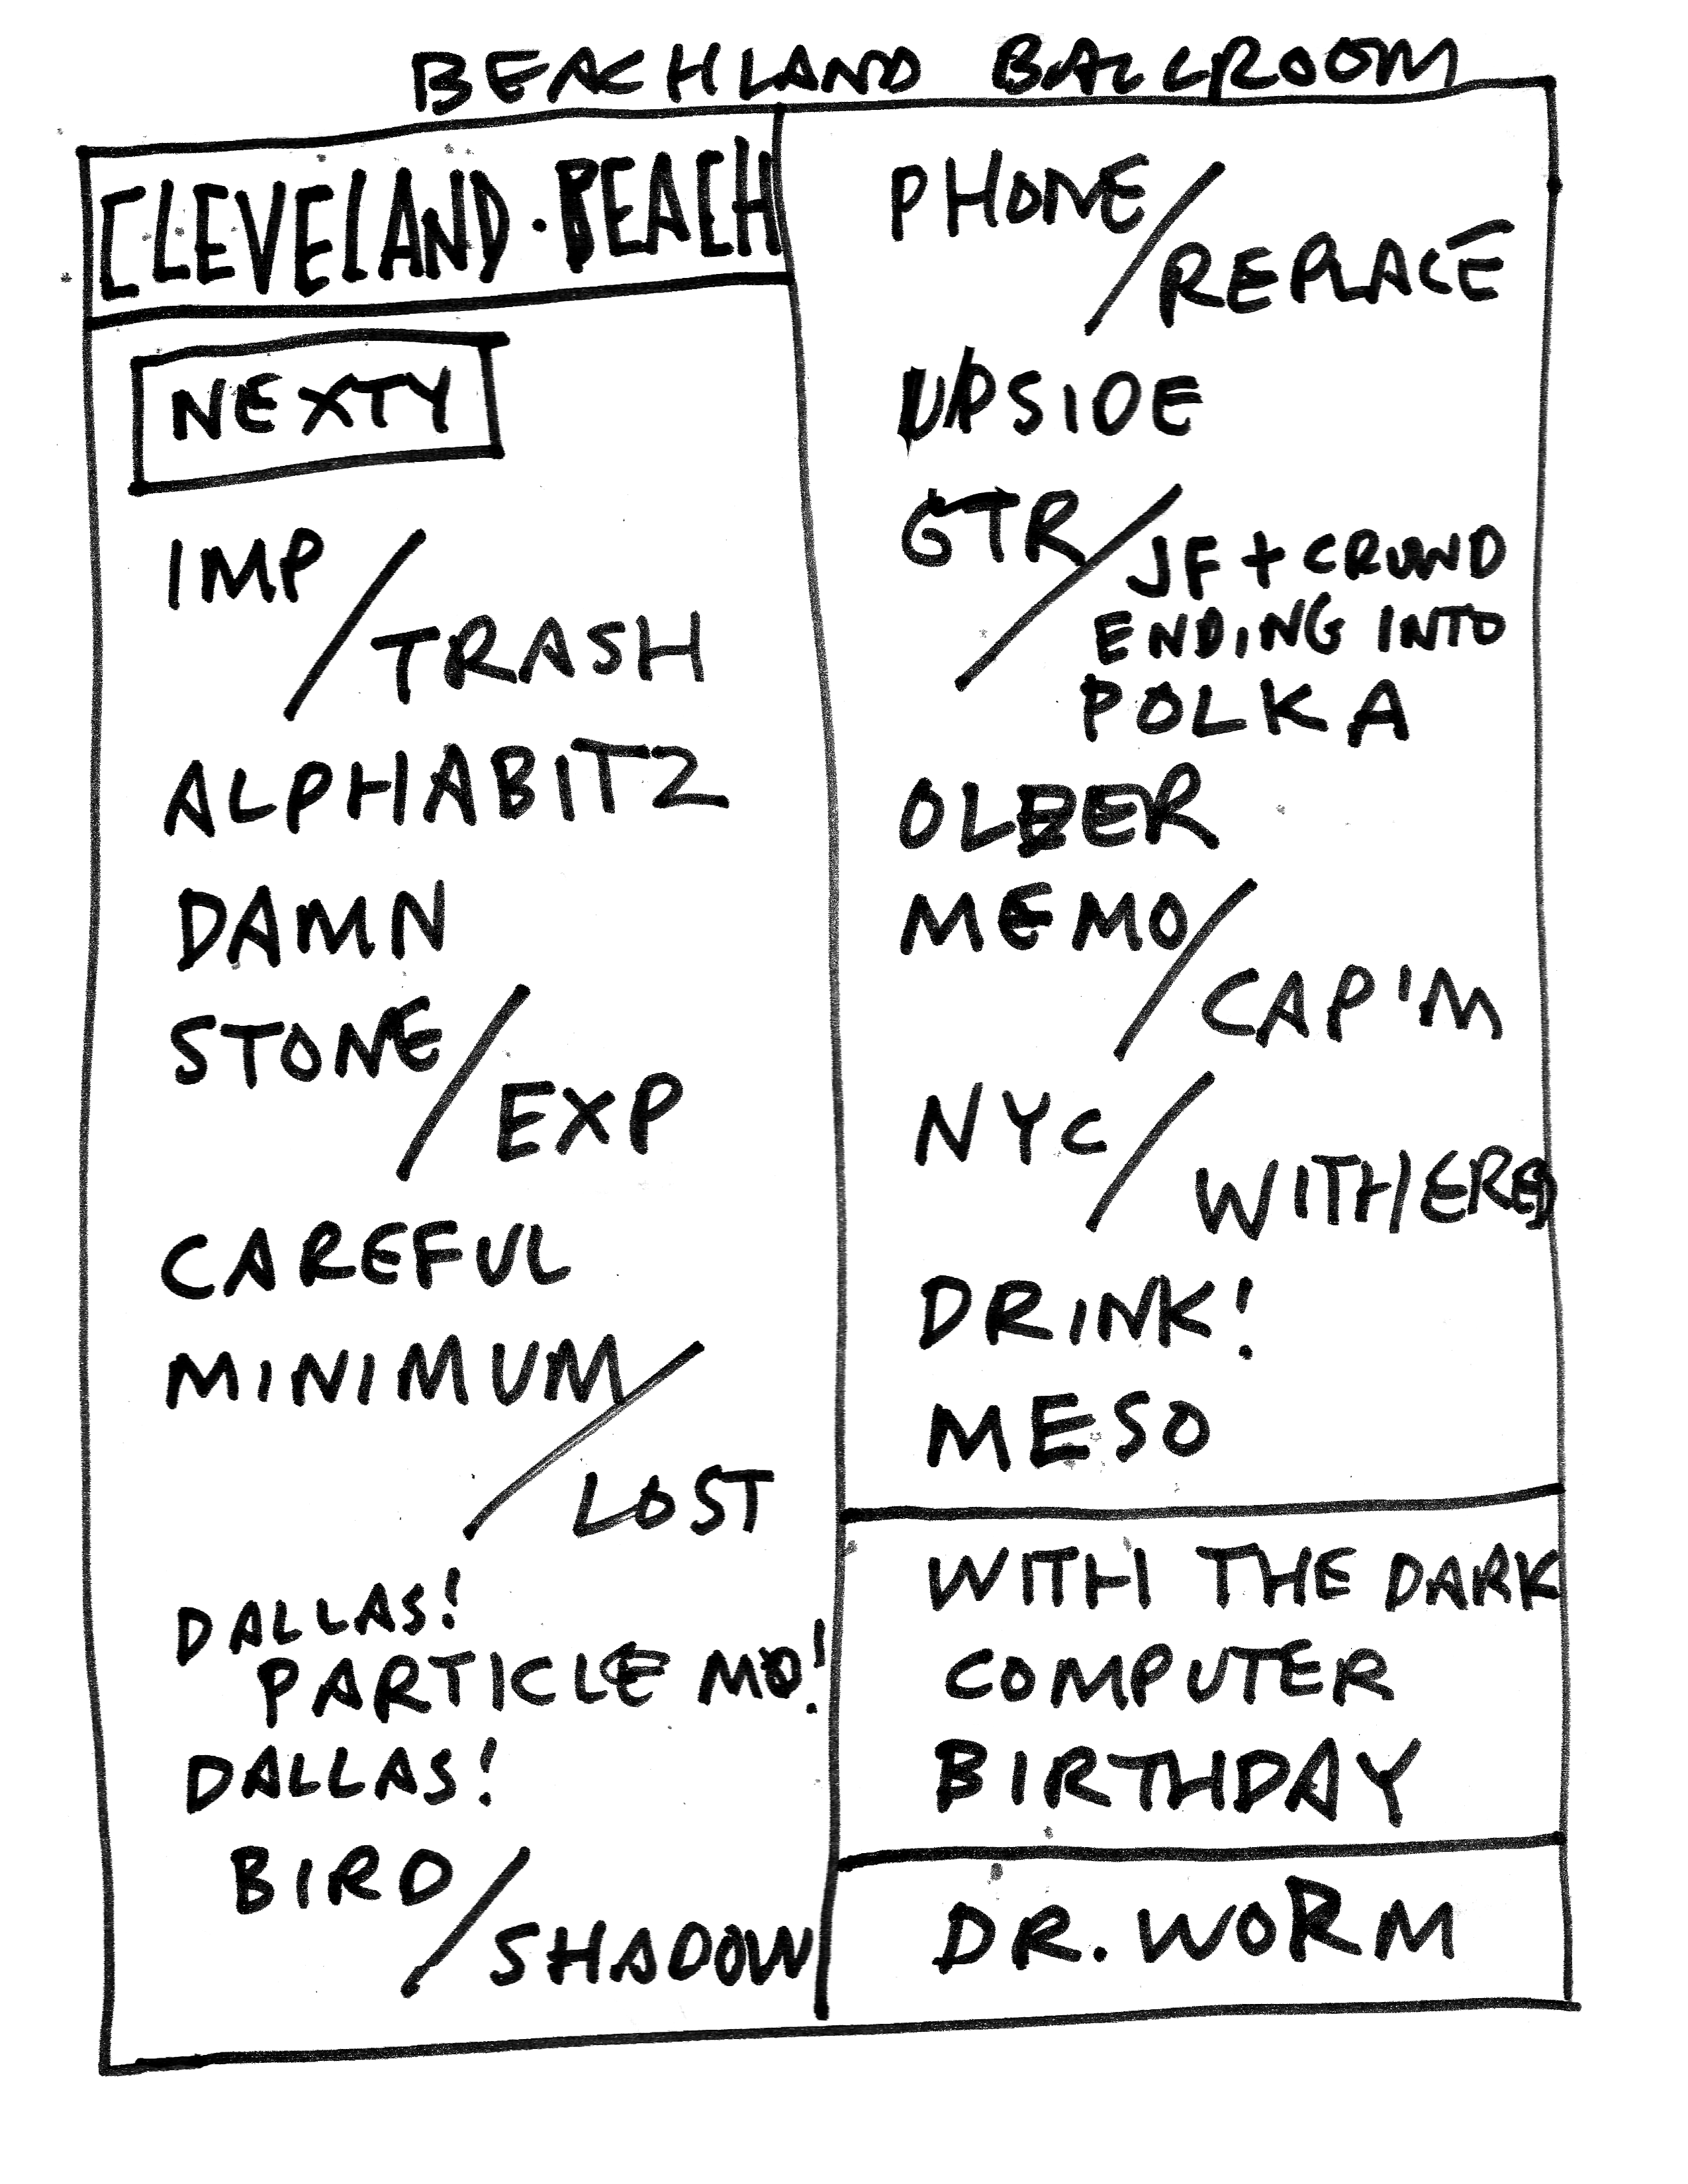 BEACHLAND BALLROOM
CLEVELAND · BEACH
NEXTY
IMP/
TRASH
ALPHABITZ
DAMN
STONE/
EXP
CAREFUL
MINIMUM/
LOST
DALLAS!
PARTICLE MO!
DALLAS!
BIRD/
SHADOW
PHONE/
REPLACE
UPSIDE
GTR/
JF + CROWD
ENDING INTO
POLKA
OLDER
MEMO/
CAP'M
NYC/
WITHERED
DRINK!
MESO
WITH THE DARK
COMPUTER
BIRTHDAY
DR. WORM